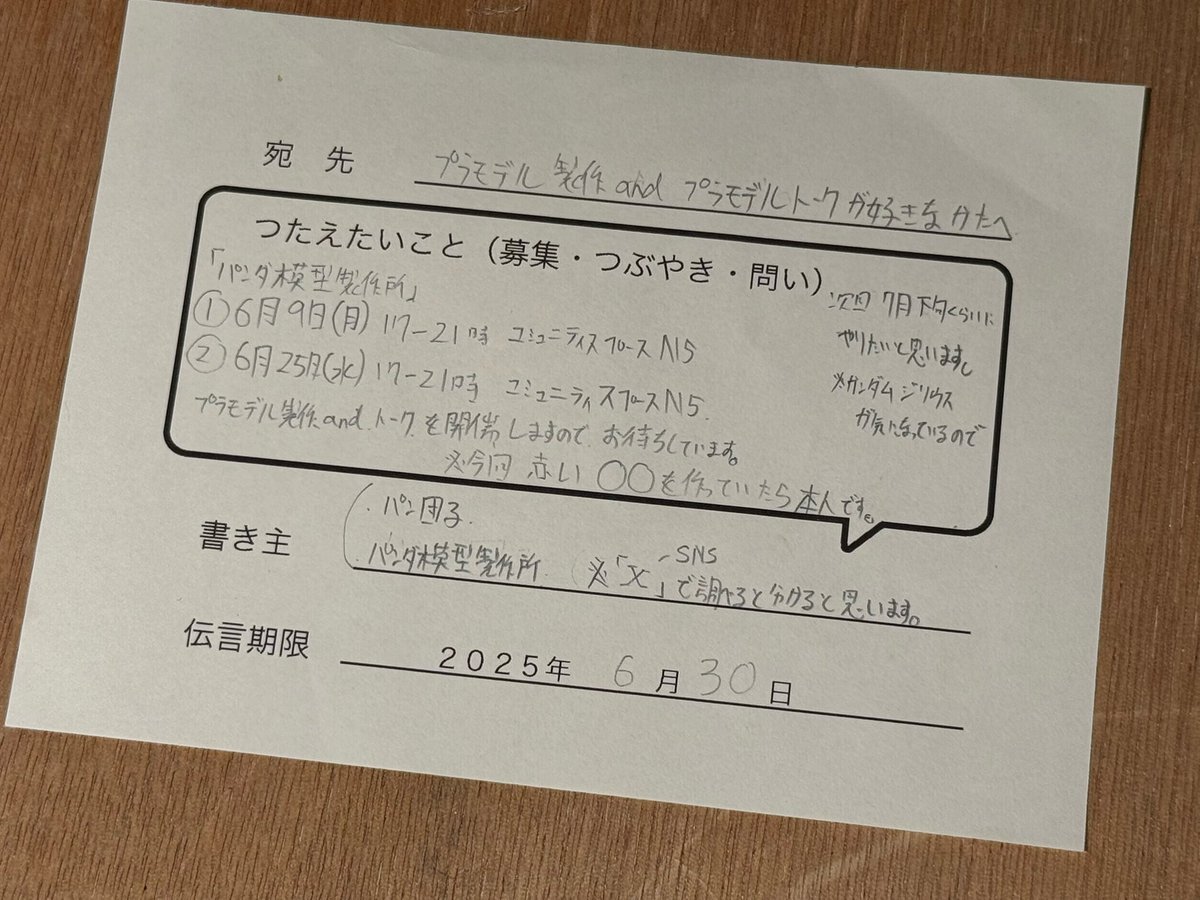 宛 先 プラモデル 製作 and プラモデルトークが好きなかたへ
つたえたいこと（募集・つぶやき・問い）
「パンダ模型製作所」
①6月9日(月) 17-21時 コミュニティスペースN5
②6月25日(水) 17-21時 コミュニティスペースN5.
プラモデル製作and トークを開催しますので お待ちしています。
※今回 赤い ○○を作っていたら本人です。
次回 7月下旬くらいに
やりたいと思います。
※ガンダム ジリウス
が気になっているので
書き主
・パン団子
・パンダ模型製作所. ※「X」で調べると分かると思います。
SNS
伝言期限 2025年 6月30日